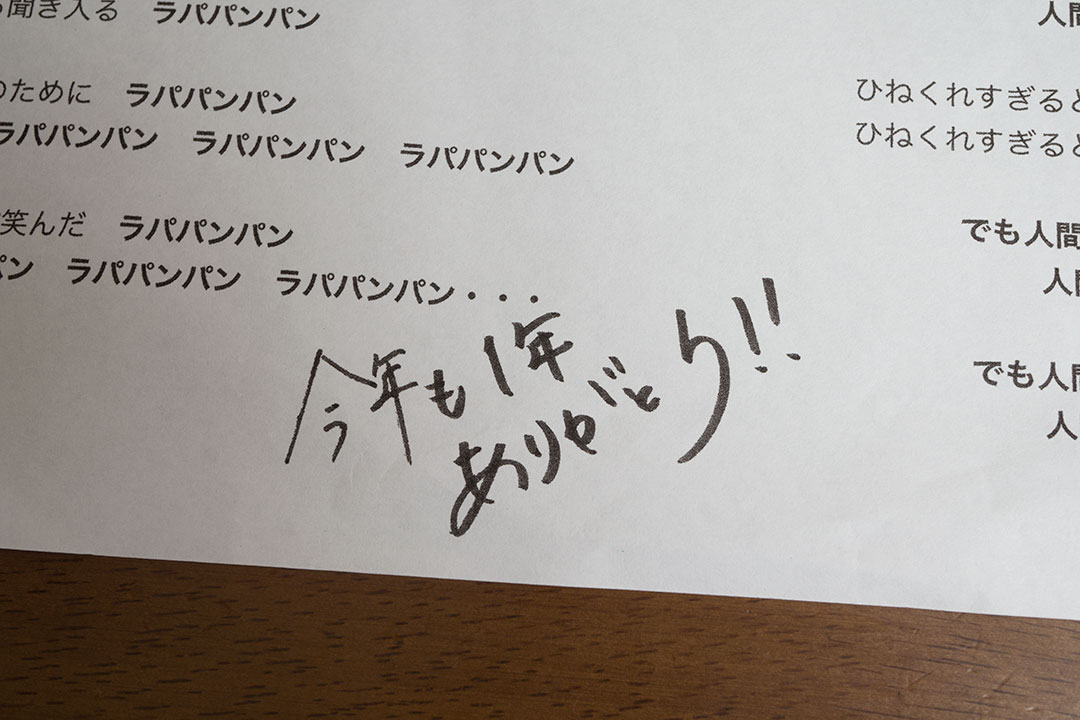 聞き入る　ラパパンパン
のために　ラパパンパン
ラパパンパン　ラパパンパン　ラパパンパン
笑んだ　ラパパンパン
パン　ラパパンパン　ラパパンパン・・・
今年も1年
ありがとう!!
人間
ひねくれすぎると
ひねくれすぎると
でも人間
人間
でも人間
人